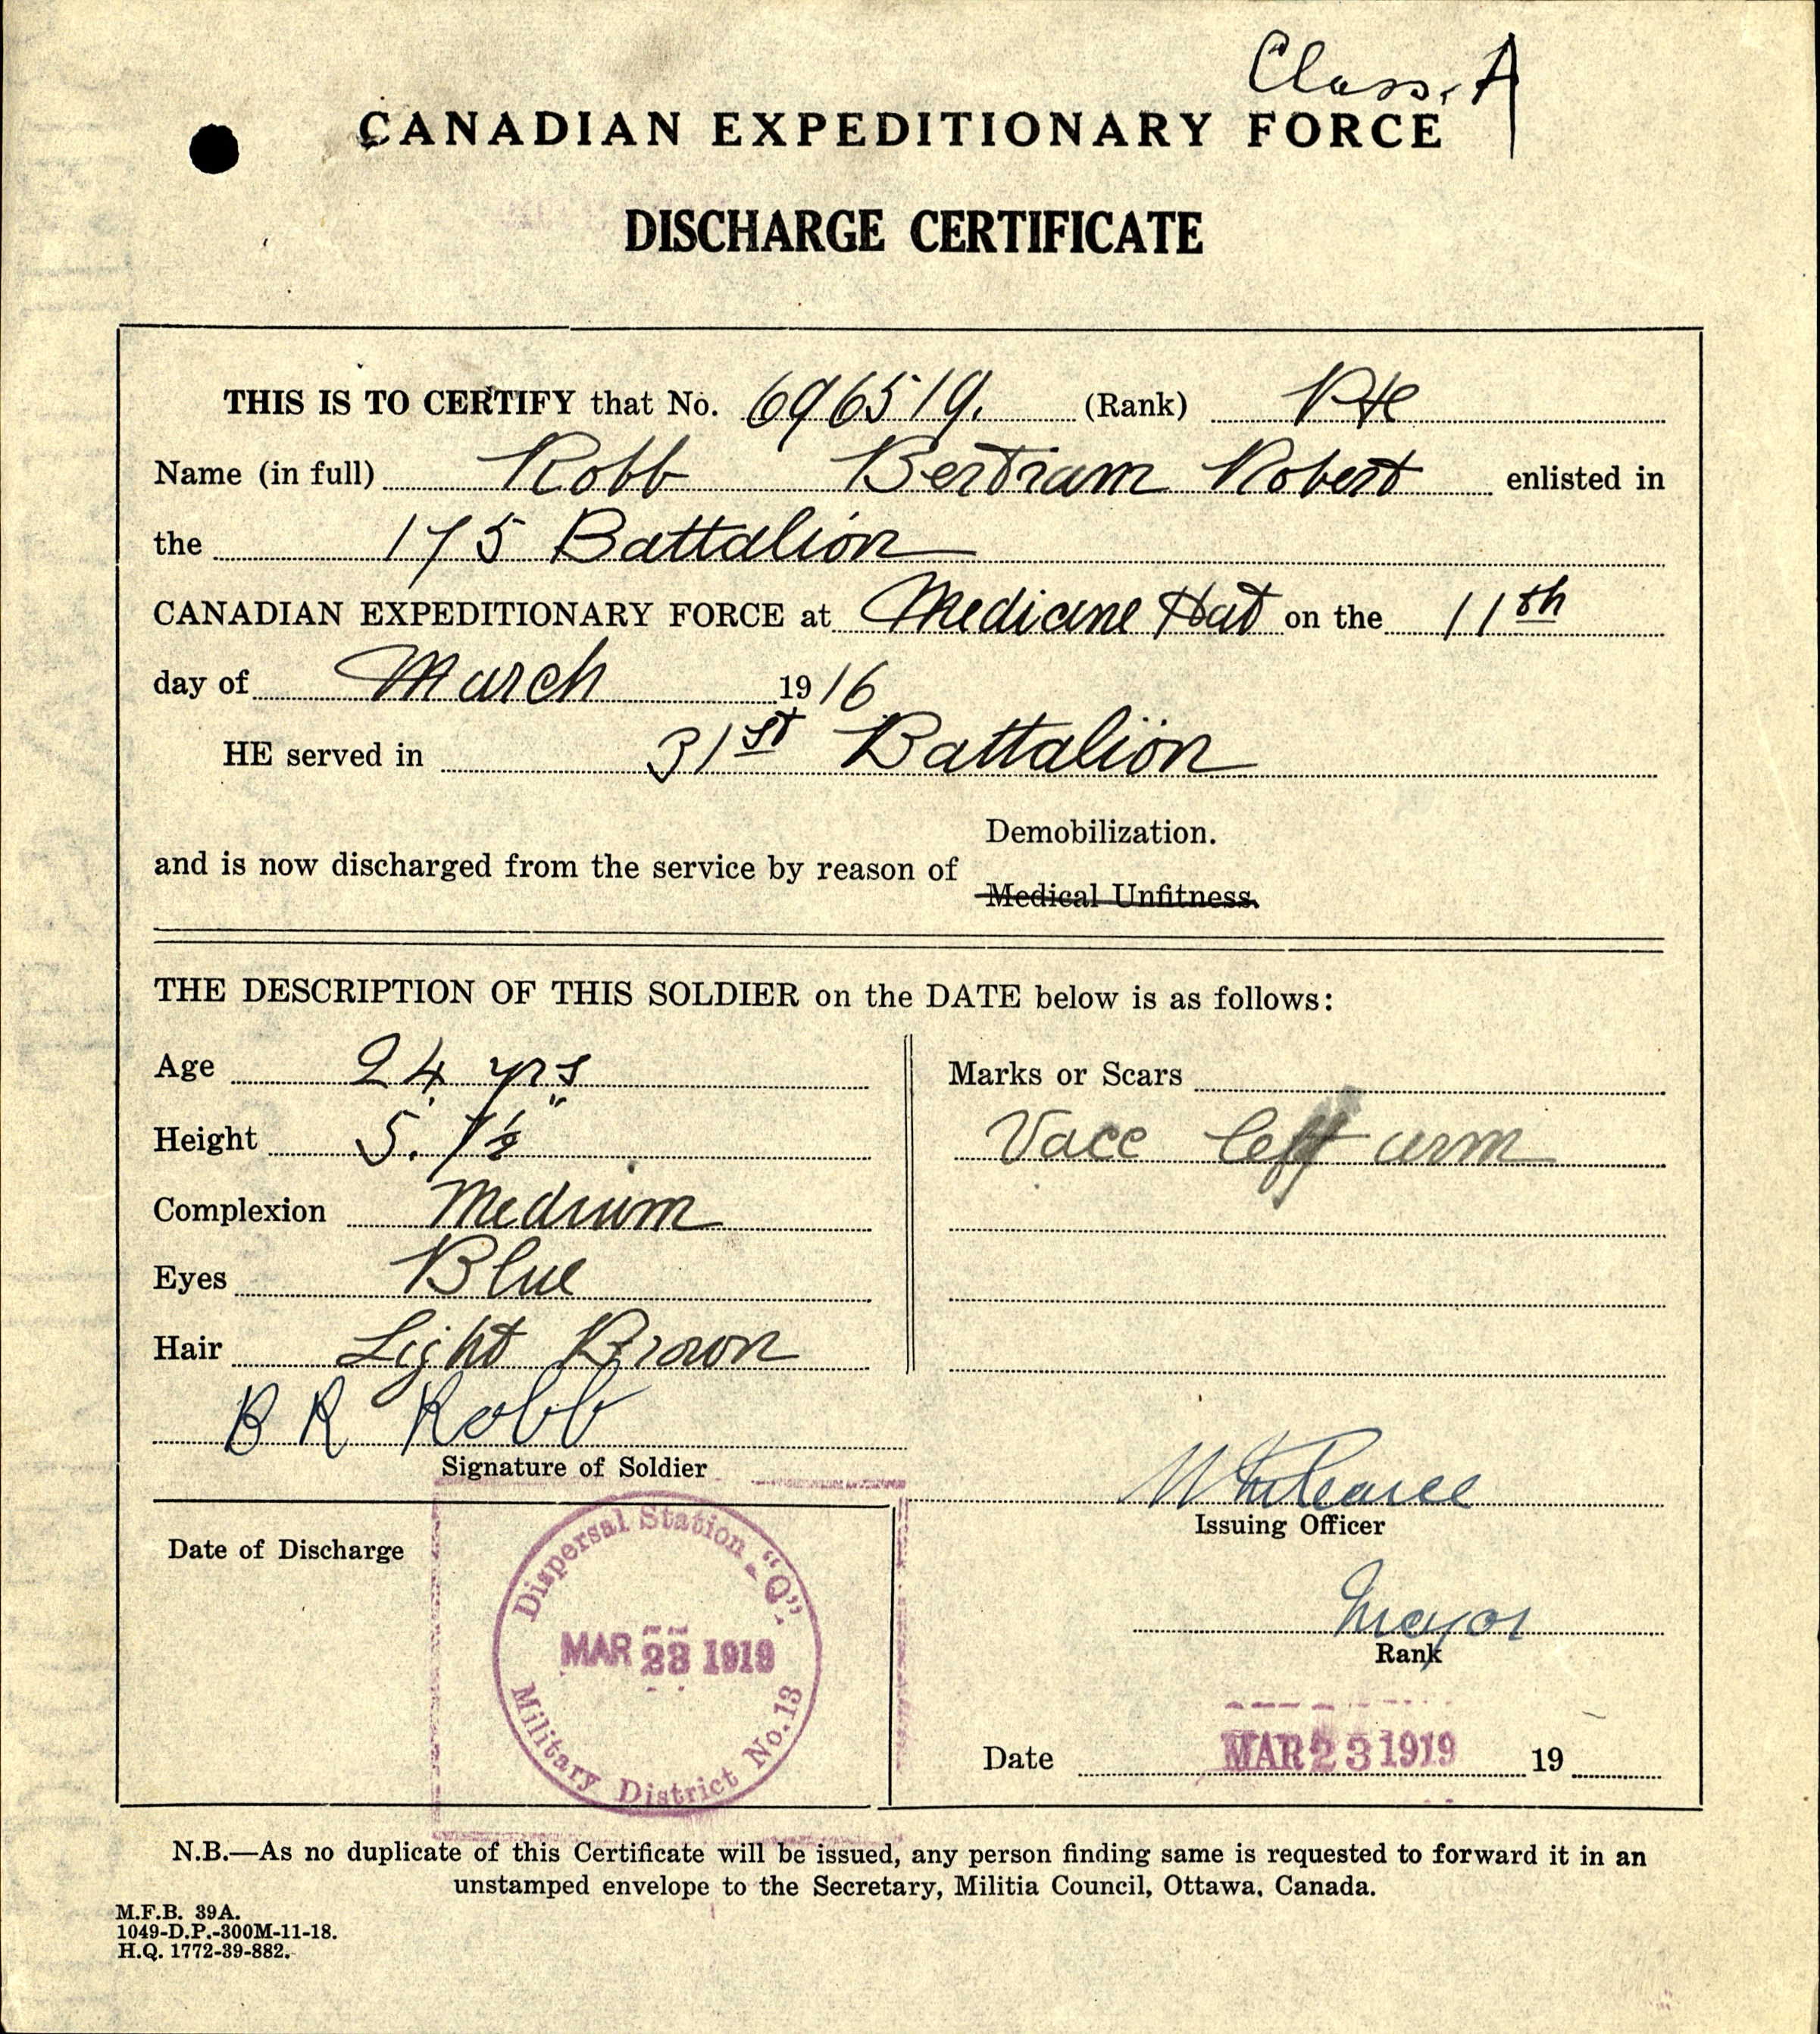 Class. A
CANADIAN EXPEDITIONARY FORCE
DISCHARGE CERTIFICATE
THIS IS TO CERTIFY that No. 696519. (Rank) Pte
Name (in full) Robb Bertram Robert enlisted in
the 175 Battalion
CANADIAN EXPEDITIONARY FORCE at Medicine Hat on the 11th
day of March 1916
HE served in 31st Battalion
Demobilization.
and is now discharged from the service by reason of
Medical Unfitness.
THE DESCRIPTION OF THIS SOLDIER on the DATE below is as follows:
Age 24 yrs
Height 5' 7½"
Complexion Medium
Eyes Blue
Hair Light Brown
Marks or Scars
Vacc left arm
B R Robb
Signature of Soldier
Issuing Officer
Mayor
Rank
Date of Discharge
Dispersal Station "Q".
MAR 23 1919
Military District No. 13
Date MAR 23 1919 19
N.B.—As no duplicate of this Certificate will be issued, any person finding same is requested to forward it in an
unstamped envelope to the Secretary, Militia Council, Ottawa, Canada.
M.F.B. 39A.
1049-D.P.-300M-11-18.
H.Q. 1772-39-882.